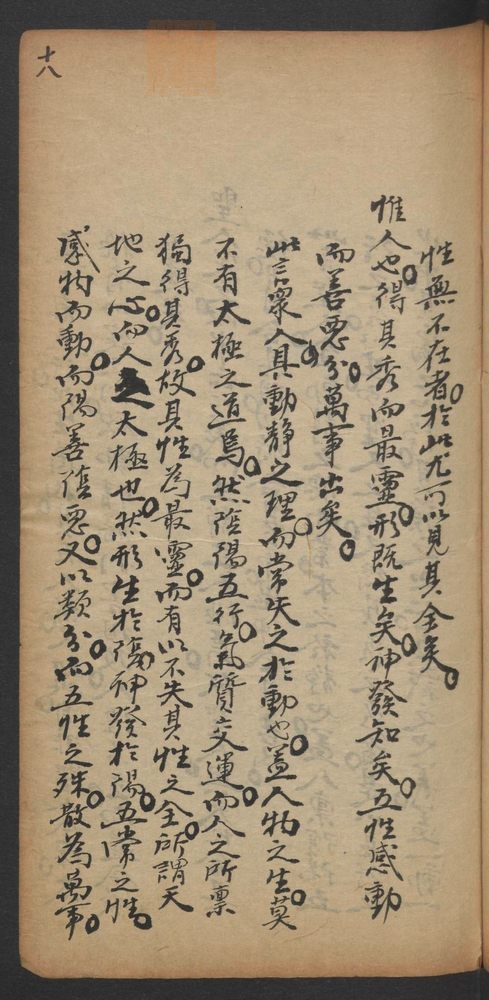 十八
性無不在者。於此尤可以見其全矣。
惟人也。得其秀而最靈。形既生矣。神發知矣。五性感動
而善惡分。萬事出矣。
此言衆人具動靜之理。而常失之於動也。蓋人物之生。莫
不有太極之道焉。然陰陽五行。氣質交運。而人之所禀
獨得其秀。故其性為最靈。而有以不失其性之全。所謂天
地之心。而人之太極也。然形生於陰。神發於陽。五常之性。
感物而動。而陽善陰惡。又以類分。而五性之殊。散為萬事。